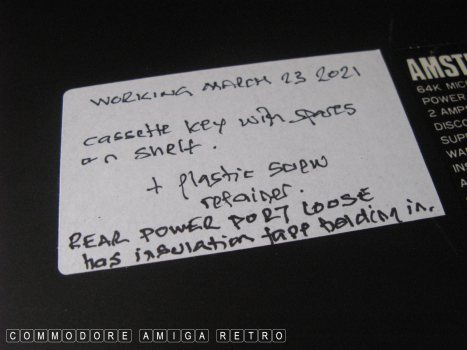 WORKING MARCH 23 2021
cassette key with spares
on shelf.
+ plastic screw
retainer.
REAR POWER PORT LOOSE
has insulation tape holding in.
AMST
64K MIC
POWER
2 AMPS
DISCO
SUPP
WA
IN
A
COMMODORE AMIGA RETRO